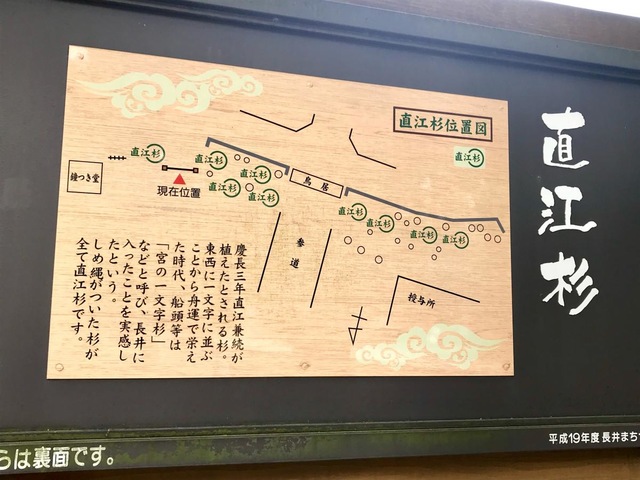 直江杉位置図
直江杉
直江杉
鐘つき堂
現在位置
直江杉
直江杉
直江杉
直江杉
鳥居
直江杉
直江杉
直江杉
直江杉
参道
授与所
慶長三年直江兼続が
植えたとされる杉。
東西に一文字に並ぶ
ことから舟運で栄え
た時代、船頭等は
「宮の一文字杉」
などと呼び、長井に
入ったことを実感し
たという。
しめ縄がついた杉が
全て直江杉です。
直江杉
平成19年度 長井まち
らは裏面です。